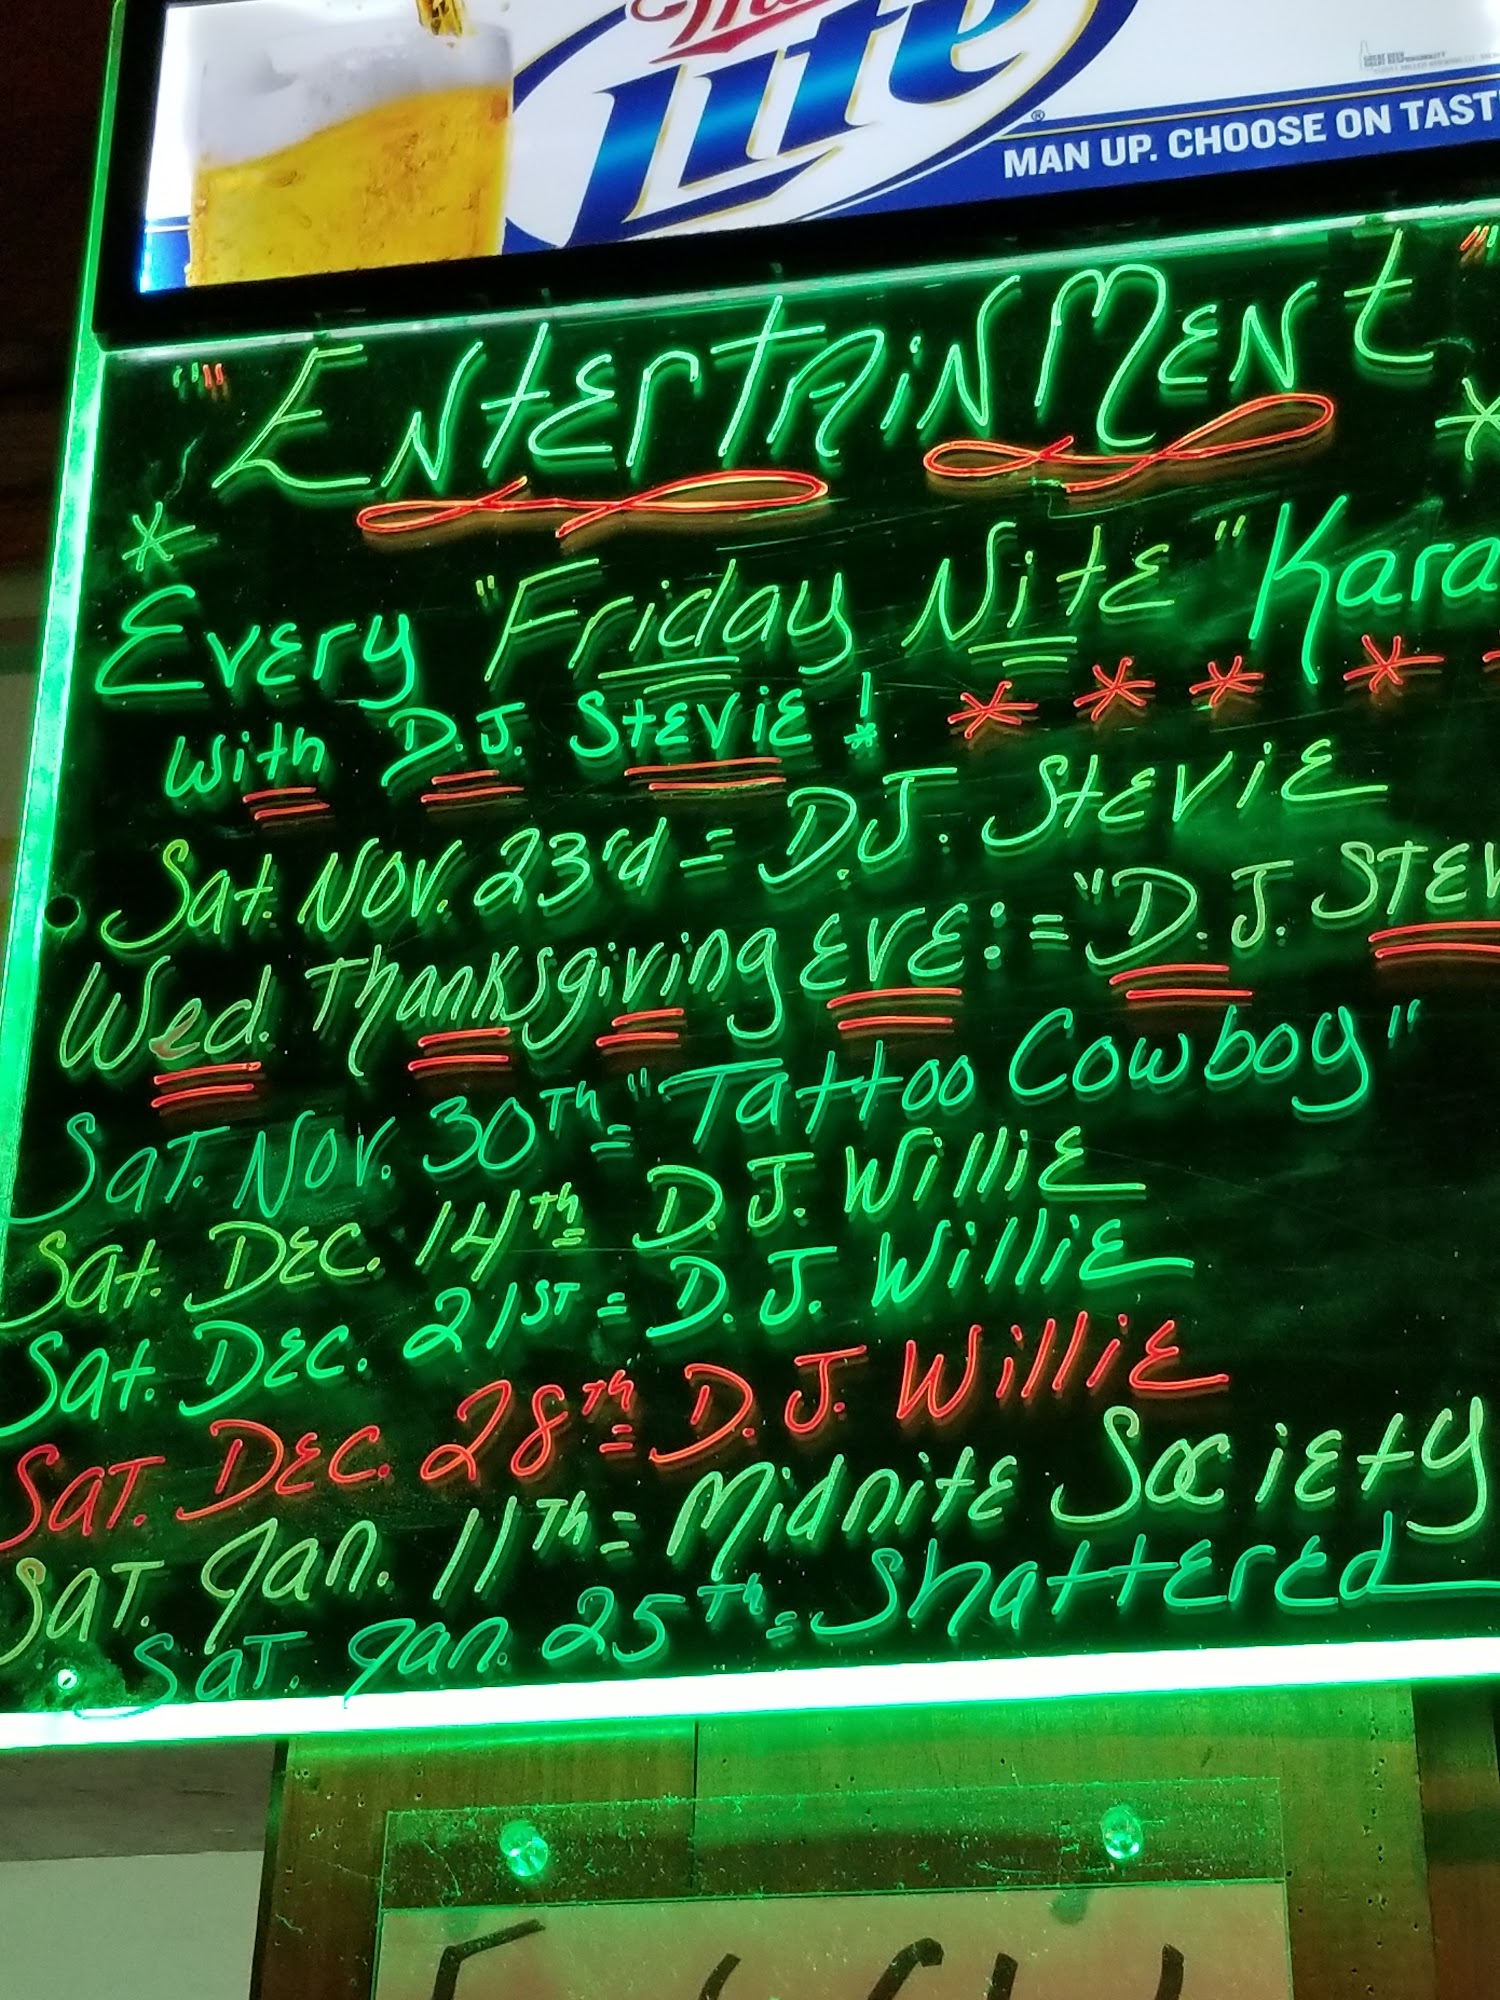 Lite
MAN UP. CHOOSE ON TAST
"ENtErtAiNMENt"
Every "Friday Nite" Kara
With D.J. Stevie!
Sat. Nov. 23rd = D.J. Stevie
Wed. Thanksgiving Eve: = "D.J. STEV
Sat. Nov. 30Th = "Tattoo Cowboy"
Sat. Dec. 14Th = D.J. Willie
Sat. Dec. 21ST = D.J. Willie
Sat. Dec. 28Th = D.J. Willie
Sat. Jan. 11Th = Midnite Society
Sat. Jan. 25Th = Shattered